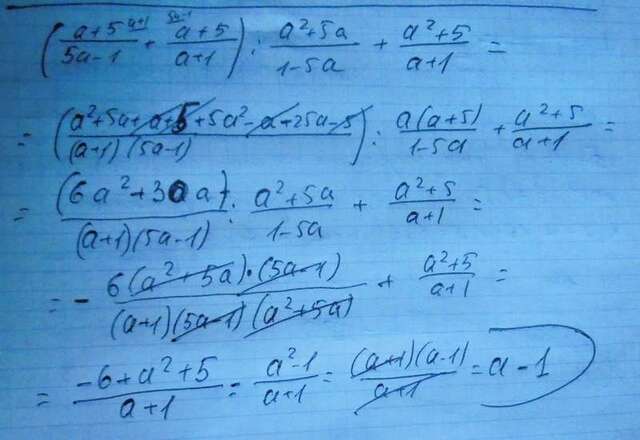 ( (a+5)/(5a-1) ^(a+1) + (a+5)/(a+1) ^(5a-1) ) : (a²+5a)/(1-5a) + (a²+5)/(a+1) =
= ( (a²+5a+a+5+5a²-a+25a-5)/((a+1)(5a-1)) ) : (a(a+5))/(1-5a) + (a²+5)/(a+1) =
= (6a²+30a)/((a+1)(5a-1)) : (a²+5a)/(1-5a) + (a²+5)/(a+1) =
= - (6(a²+5a)·(5a-1))/((a+1)(5a-1)(a²+5a)) + (a²+5)/(a+1) =
= (-6+a²+5)/(a+1) = (a²-1)/(a+1) = ((a+1)(a-1))/(a+1) = a-1